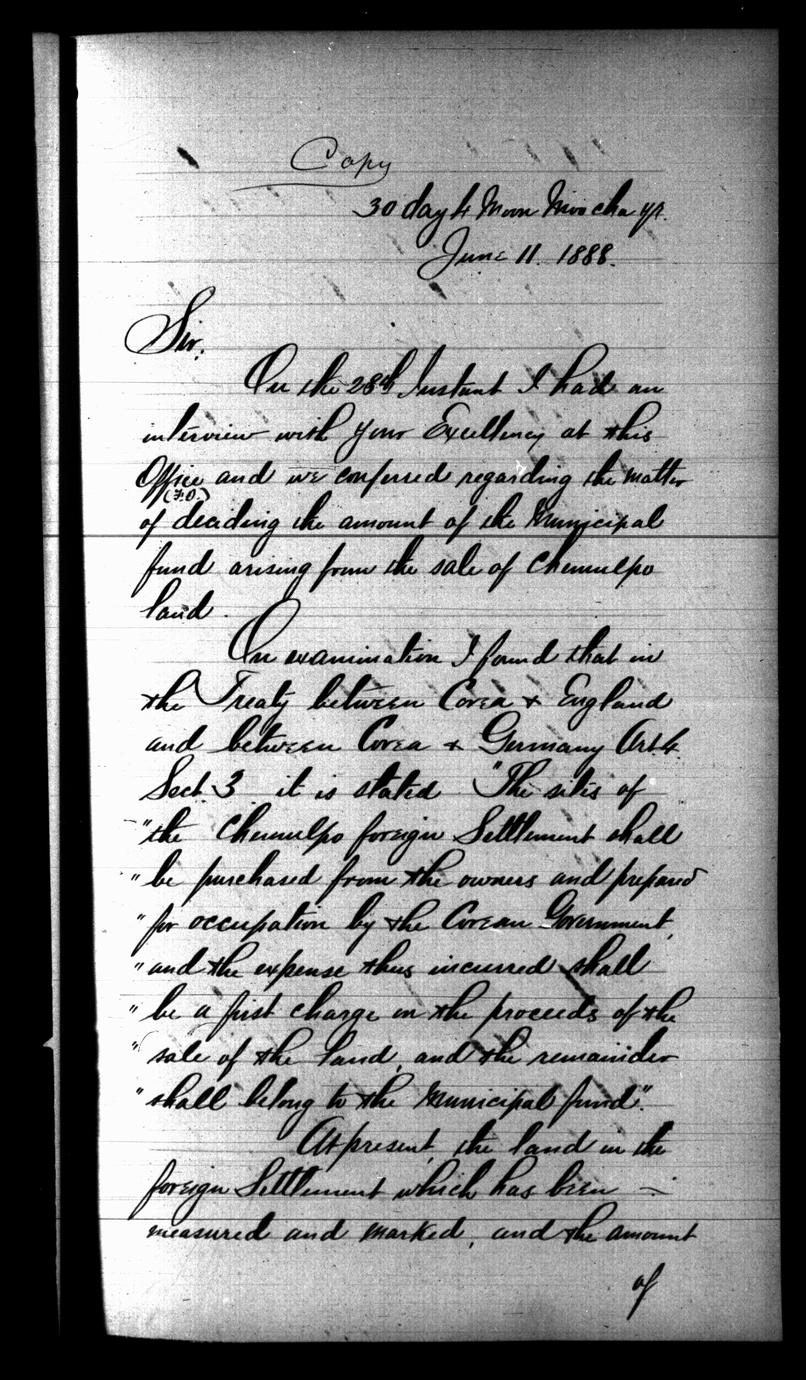 Copy
30 day 4 Moon Moo cha yr.
June 11. 1888.
Sir,
On the 28th Instant I had an
interview with your Excellency at this
Office and we conferred regarding the matter
(F.O.)
of deciding the amount of the Municipal
fund arising from the sale of Chemulpo
land.
On examination I found that in
the Treaty between Corea & England
and between Corea & Germany Art. 4.
Sect. 3 it is stated "The sites of
"the Chemulpo foreign Settlement shall
"be purchased from the owners and prepared
"for occupation by the Corean Government,
"and the expense thus incurred shall
"be a first charge on the proceeds of the
"sale of the land, and the remainder
"shall belong to the Municipal fund".
At present, the land in the
foreign Settlement which has been -
measured and marked, and the amount
of